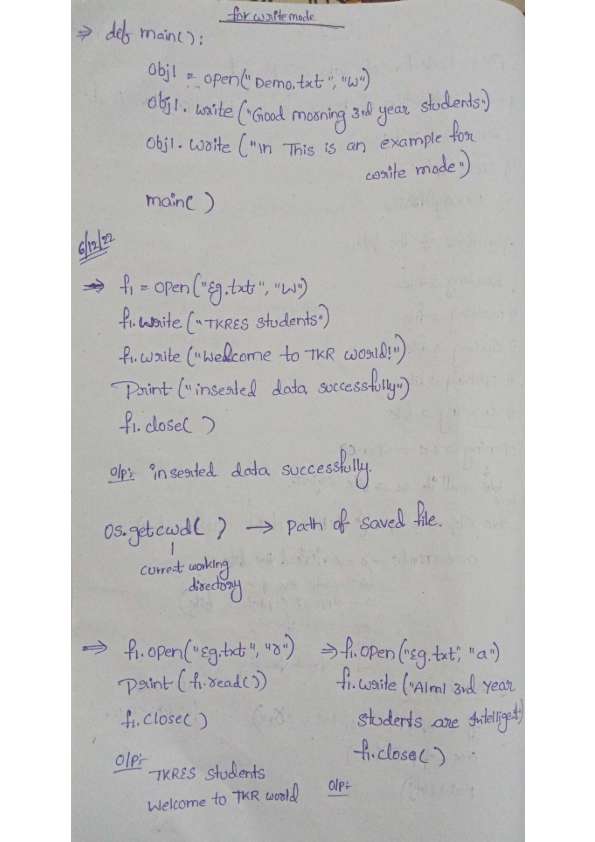 for write mode
⇒ def main():
obj1 = open("Demo.txt", "w")
obj1.write("Good morning 3rd year students")
obj1.write("\n This is an example for
write mode")
main( )
6/12/22
⇒ f1 = open("Eg.txt", "w")
f1.write("TKRES students")
f1.write("Welcome to TKR world!")
Print("inserted data successfully")
f1.close( )
O/P:- inserted data successfully.
os.getcwd( ) → path of saved file.
current working
directory
⇒ f1.open("Eg.txt", "r")
print(f1.read())
f1.close( )
O/P:-
TKRES students
Welcome to TKR world
⇒ f1.open("Eg.txt", "a")
f1.write("AIml 3rd year
students are Intelligent)
f1.close( )
O/P:-